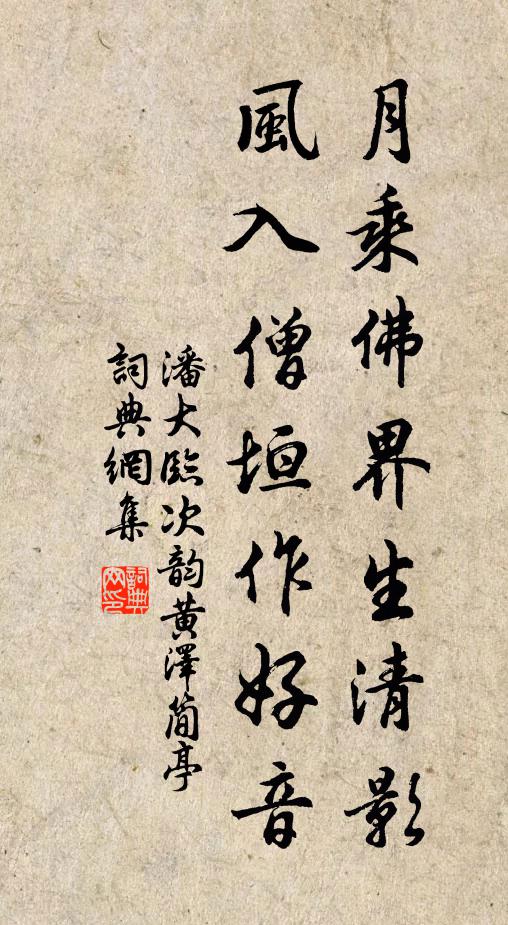 月乘佛界生清影
風入僧垣作好音
潘大臨次韵黃澤簡亭
詞典網集
詞典網印